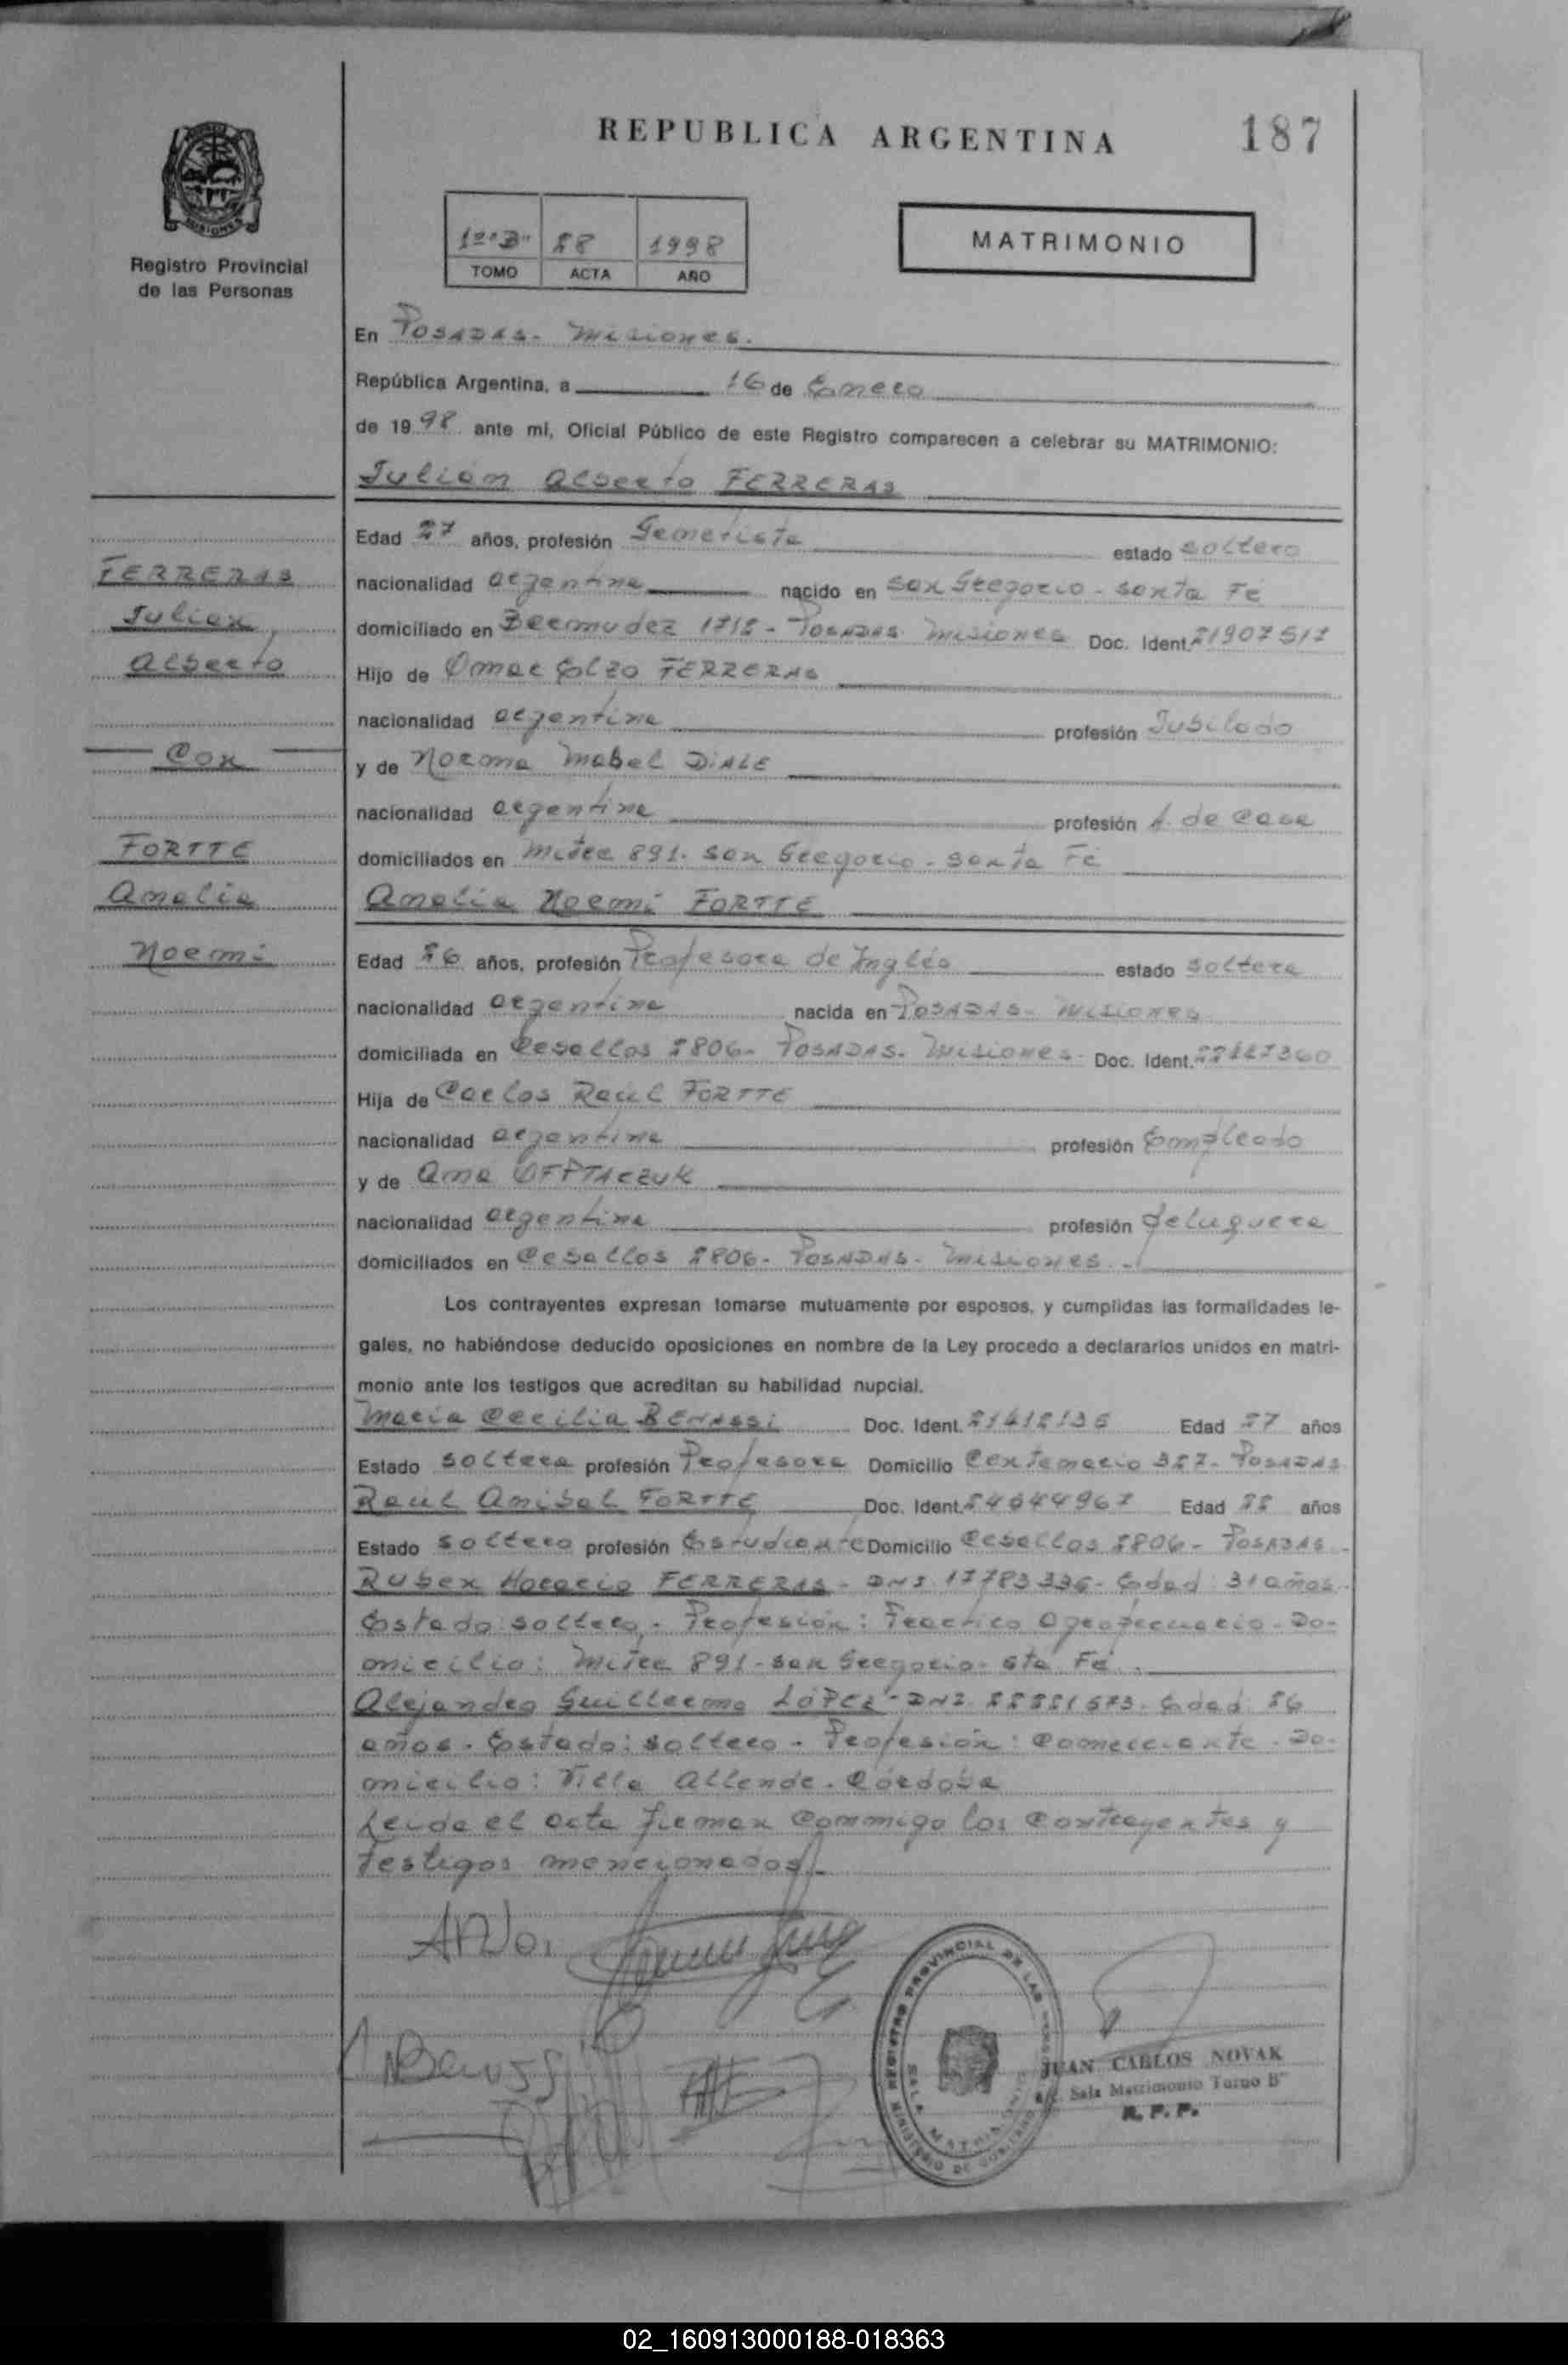 REPUBLICA ARGENTINA
187
MISIONES
Registro Provincial
de las Personas
1º "B" 28 1998
TOMO ACTA AÑO
MATRIMONIO
En POSADAS - Misiones.
República Argentina, a 16 de Enero
de 1998 ante mí, Oficial Público de este Registro comparecen a celebrar su MATRIMONIO:
Julian Alberto FERRERAS
FERRERAS
Julian
Alberto
Con
FORTTE
Amelia
Noemi
Edad 27 años, profesión Genetista estado soltero
nacionalidad argentina nacido en San Gregorio - Santa Fé
domiciliado en Bermudez 1718 - POSADAS Misiones Doc. Ident. 21907517
Hijo de Omar Elzo FERRERAS
nacionalidad argentina profesión Jubilado
y de Norma Mabel DIALE
nacionalidad argentina profesión A. de Casa
domiciliados en Mitre 891. San Gregorio - Santa Fé
Amelia Noemi FORTTE
Edad 26 años, profesión Profesora de Inglés estado soltera
nacionalidad argentina nacida en POSADAS - Misiones
domiciliada en Ceballos 2806 - POSADAS - Misiones Doc. Ident.
Hija de Carlos Raúl FORTTE
nacionalidad argentina profesión Empleado
y de Ana
nacionalidad argentina profesión Peluquera
domiciliados en Ceballos 2806 - POSADAS - Misiones
Los contrayentes expresan tomarse mutuamente por esposos, y cumplidas las formalidades le-
gales, no habiéndose deducido oposiciones en nombre de la Ley procedo a declararlos unidos en matri-
monio ante los testigos que acreditan su habilidad nupcial.
Maria Cecilia BENASSI Doc. Ident. 21412136 Edad 27 años
Estado soltera profesión Profesora Domicilio Centenario 327 - POSADAS
Raúl Anibal FORTTE Doc. Ident. Edad 22 años
Estado soltero profesión Estudiante Domicilio Ceballos 2806 - POSADAS -
Ruben Horacio FERRERAS - DNI 17783336 - Edad 31 años -
Estado: soltero - Profesión: Practico Agropecuario - Do-
micilio: Mitre 891 - San Gregorio - Sta Fé
Alejandro Guillermo LÓPEZ - DNI. Edad 26
años - Estado: soltero - Profesión: Comerciante - Do-
micilio: Villa Allende - Córdoba
Leida el acta firman conmigo los contrayentes y
testigos mencionados
REGISTRO PROVINCIAL DE LAS PERSONAS
MINISTERIO DE GOBIERNO
SALA MATRIMONIO
JUAN CARLOS NOVAK
Sala Matrimonio Turno B"
R. P. P.
02_160913000188-018363